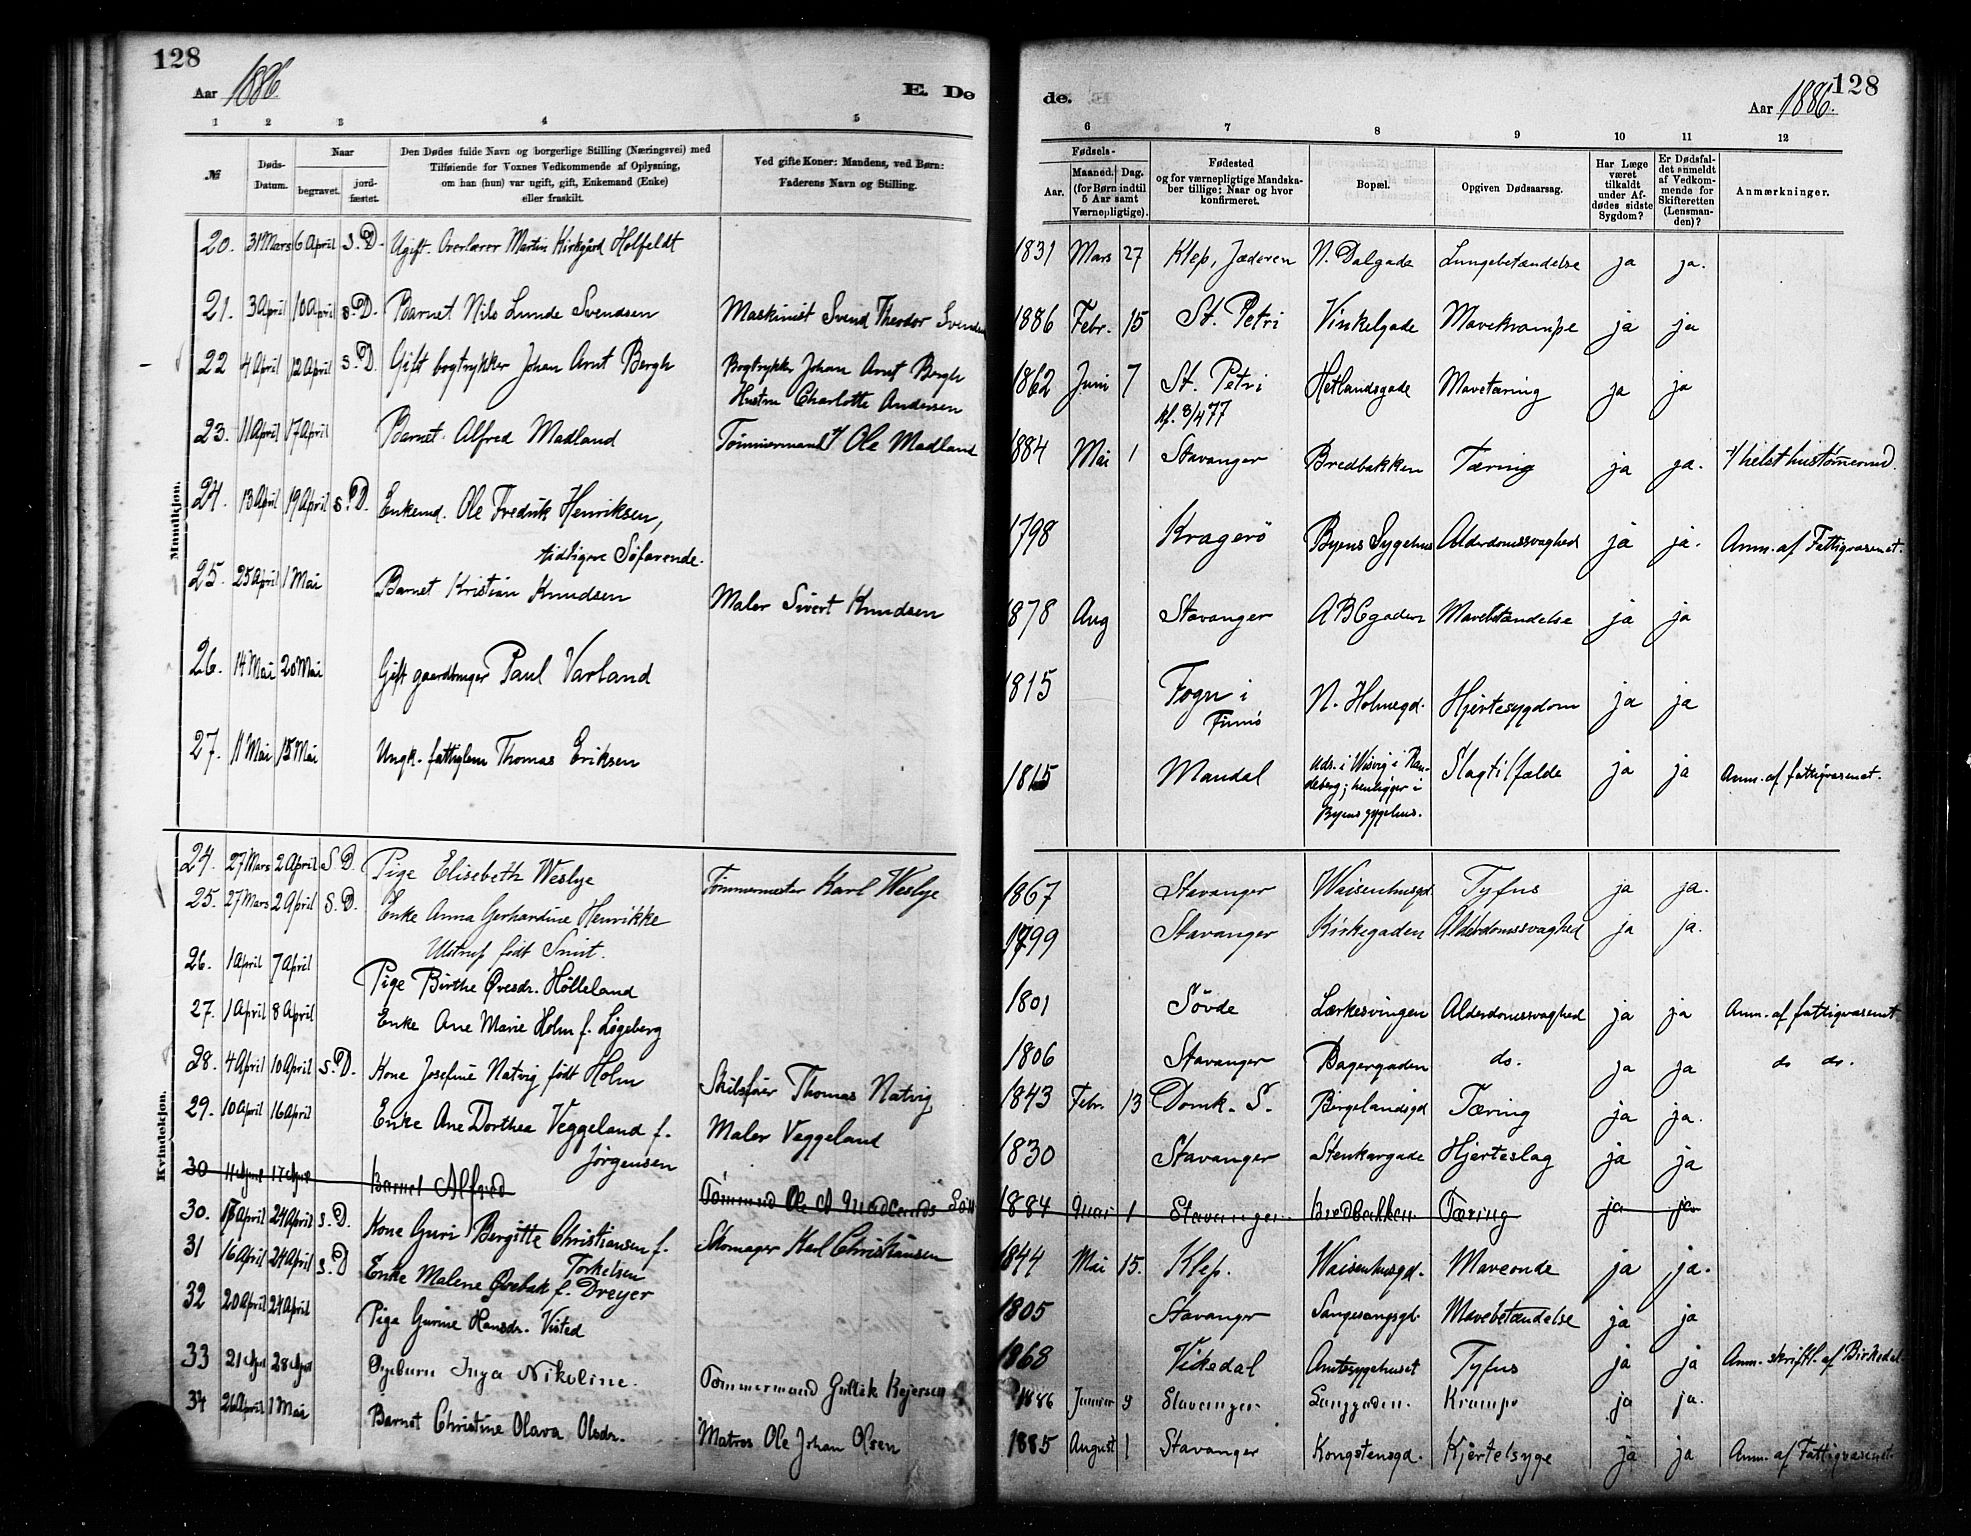 128
Aar 1886
E. De
1 2 3 4 5
№
Døds-Datum.
Naar
begravet.
jord-fæstet.
Den Dødes fulde Navn og borgerlige Stilling (Næringsvei) med
Tilføiende for Voxnes Vedkommende af Oplysning,
om han (hun) var ugift, gift, Enkemand (Enke)
eller fraskilt.
Ved gifte Koner: Mandens, ved Børn:
Faderens Navn og Stilling.
Mandkjøn.
20. 31 Mars 6 April S.D. Ugift. Overlærer Martin Kirkgård Holfeldt
21. 3 April 10 April S.D. Barnet Nils Lunde Svendsen Maskinist Svend Theodor Svendsen
22 4 April 12 April S.D. Gift bogtrykker Johan Arnt Bergh Bogtrykker Johan Arnt Bergh
Hustru Charlotte Andersen
23. 11 April 17 April Barnet Alfred Madland Tømmermand Ole Madland
24. 13 April 19 April S.D. Enkemd. Ole Fredrik Henriksen,
tidligere Søfarende.
25. 25 April 1 Mai Barnet Kristian Knudsen Maler Sivert Knudsen
26. 14 Mai 20 Mai Gift gaardbruger Paul Varland
27. 11 Mai 15 Mai Ungk. fattiglem Thomas Eriksen
Kvindekjøn.
24. 27 Mars 2 April S.D. Pige Elisebeth Weslye Tømmermester Karl Weslye
25. 27 Mars 2 April S.D. Enke Anna Gerhardine Henrikke
Ulstrup født Smit.
26. 1 April 7 April Pige Birthe Øresdr. Hølleland
27. 1 April 8 April Enke Ane Marie Holm f. Løgeberg
28. 4 April 10 April S.D. Kone Josefine Natvig født Holm Skibsfører Thomas Natvig
29. 10 April 16 April Enke Ane Dorthea Veggeland f. Maler Veggeland
Jørgensen
30 11 April 17 April Barnet Alfred Tømmermd Ole Madlands Søn
30. 17 April 24 April S.D. Kone Guri Bergitte Christiansen f. Skomager Karl Christiansen
Torkelsen
31 16 April 24 April S.D Enke Malene Øvebak f. Dreyer
32 20 April 24 April Pige Gurine Hansdr. Visted
33 21 April 28 April Pigebarn Inga Nikoline. Tømmermand Gullik Rejersen
34 26 April 1 Mai Barnet Christine Olava Olsdr. Matros Ole Johan Olsen
de.
Aar 1886.
128
6 7 8 9 10 11 12
Fødsels-
Aar.
Maaned. Dag.
(for Børn indtil
5 Aar samt
Værnepligtige).
Fødested
og for værnepligtige Mandska-
ber tillige: Naar og hvor
konfirmeret.
Bopæl.
Opgiven Dødsaarsag.
Har Læge
været
tilkaldt
under Af-
dødes sidste
Sygdom?
Er Dødsfal-
det anmeldt
af Vedkom-
mende for
Skifteretten
(Lensman-
den)?
Anmærkninger.
1831 Mars 27 Klep, Jæderen N. Dalgade Lungebetændelse ja ja.
1886 Febr. 15 St. Petri Vinkelgade Mavekrampe ja ja
1862 Juni 7 St. Petri Hetlandsgade Mavetæring ja ja
kf. 8/4 77
1884 Mai 1 Stavanger Bredbakken Tæring ja ja. helst hustømmermd.
1798 Kragerö Byens Sygehus Alderdomssvaghed ja ja. Anm. af Fattigvæsenet.
1878 Aug Stavanger ABCgaden Mavebetændelse ja ja
1815 Fogn i N. Holmegd. Hjertesygdom ja ja
Finnö
1815 Mandal Uds. i Wisvig i Ran-
deberg; henligger i
Byens sygehus. Slagtilfælde ja ja Anm. af fattigvæsenet.
1867 Stavanger Waisenhusgd. Tyfus ja ja.
1799 Stavanger Kirkegaden Alderdomssvaghed ja ja.
1801 Sövde Lærkesvingen Alderdomssvaghed ja ja Anm. af fattigvæsenet
1806 Stavanger Bagergaden do. ja ja do do.
1843 Febr. 13 Domk. S. Bergelandsgd Tæring ja ja.
1830 Stavanger Stenkargade Hjerteslag ja ja
1884 Mai 1 Stavanger Bredbakken Tæring ja ja
1844 Mai 15. Klep. Waisenhusgd. Maveonde ja ja.
1805 Stavanger Sangesangsgd. Mavebetændelse ja ja
1868 Vikedal Amtssygehuset Tyfus ja ja Anm. skriftl. af Birkedal
1886 Januar 9 Stavanger Langgaden. Krampe ja ja.
1885 August 1 Stavanger Kongstensgd. Kjertelsyge ja ja Anm. af Fattigvæsenet.